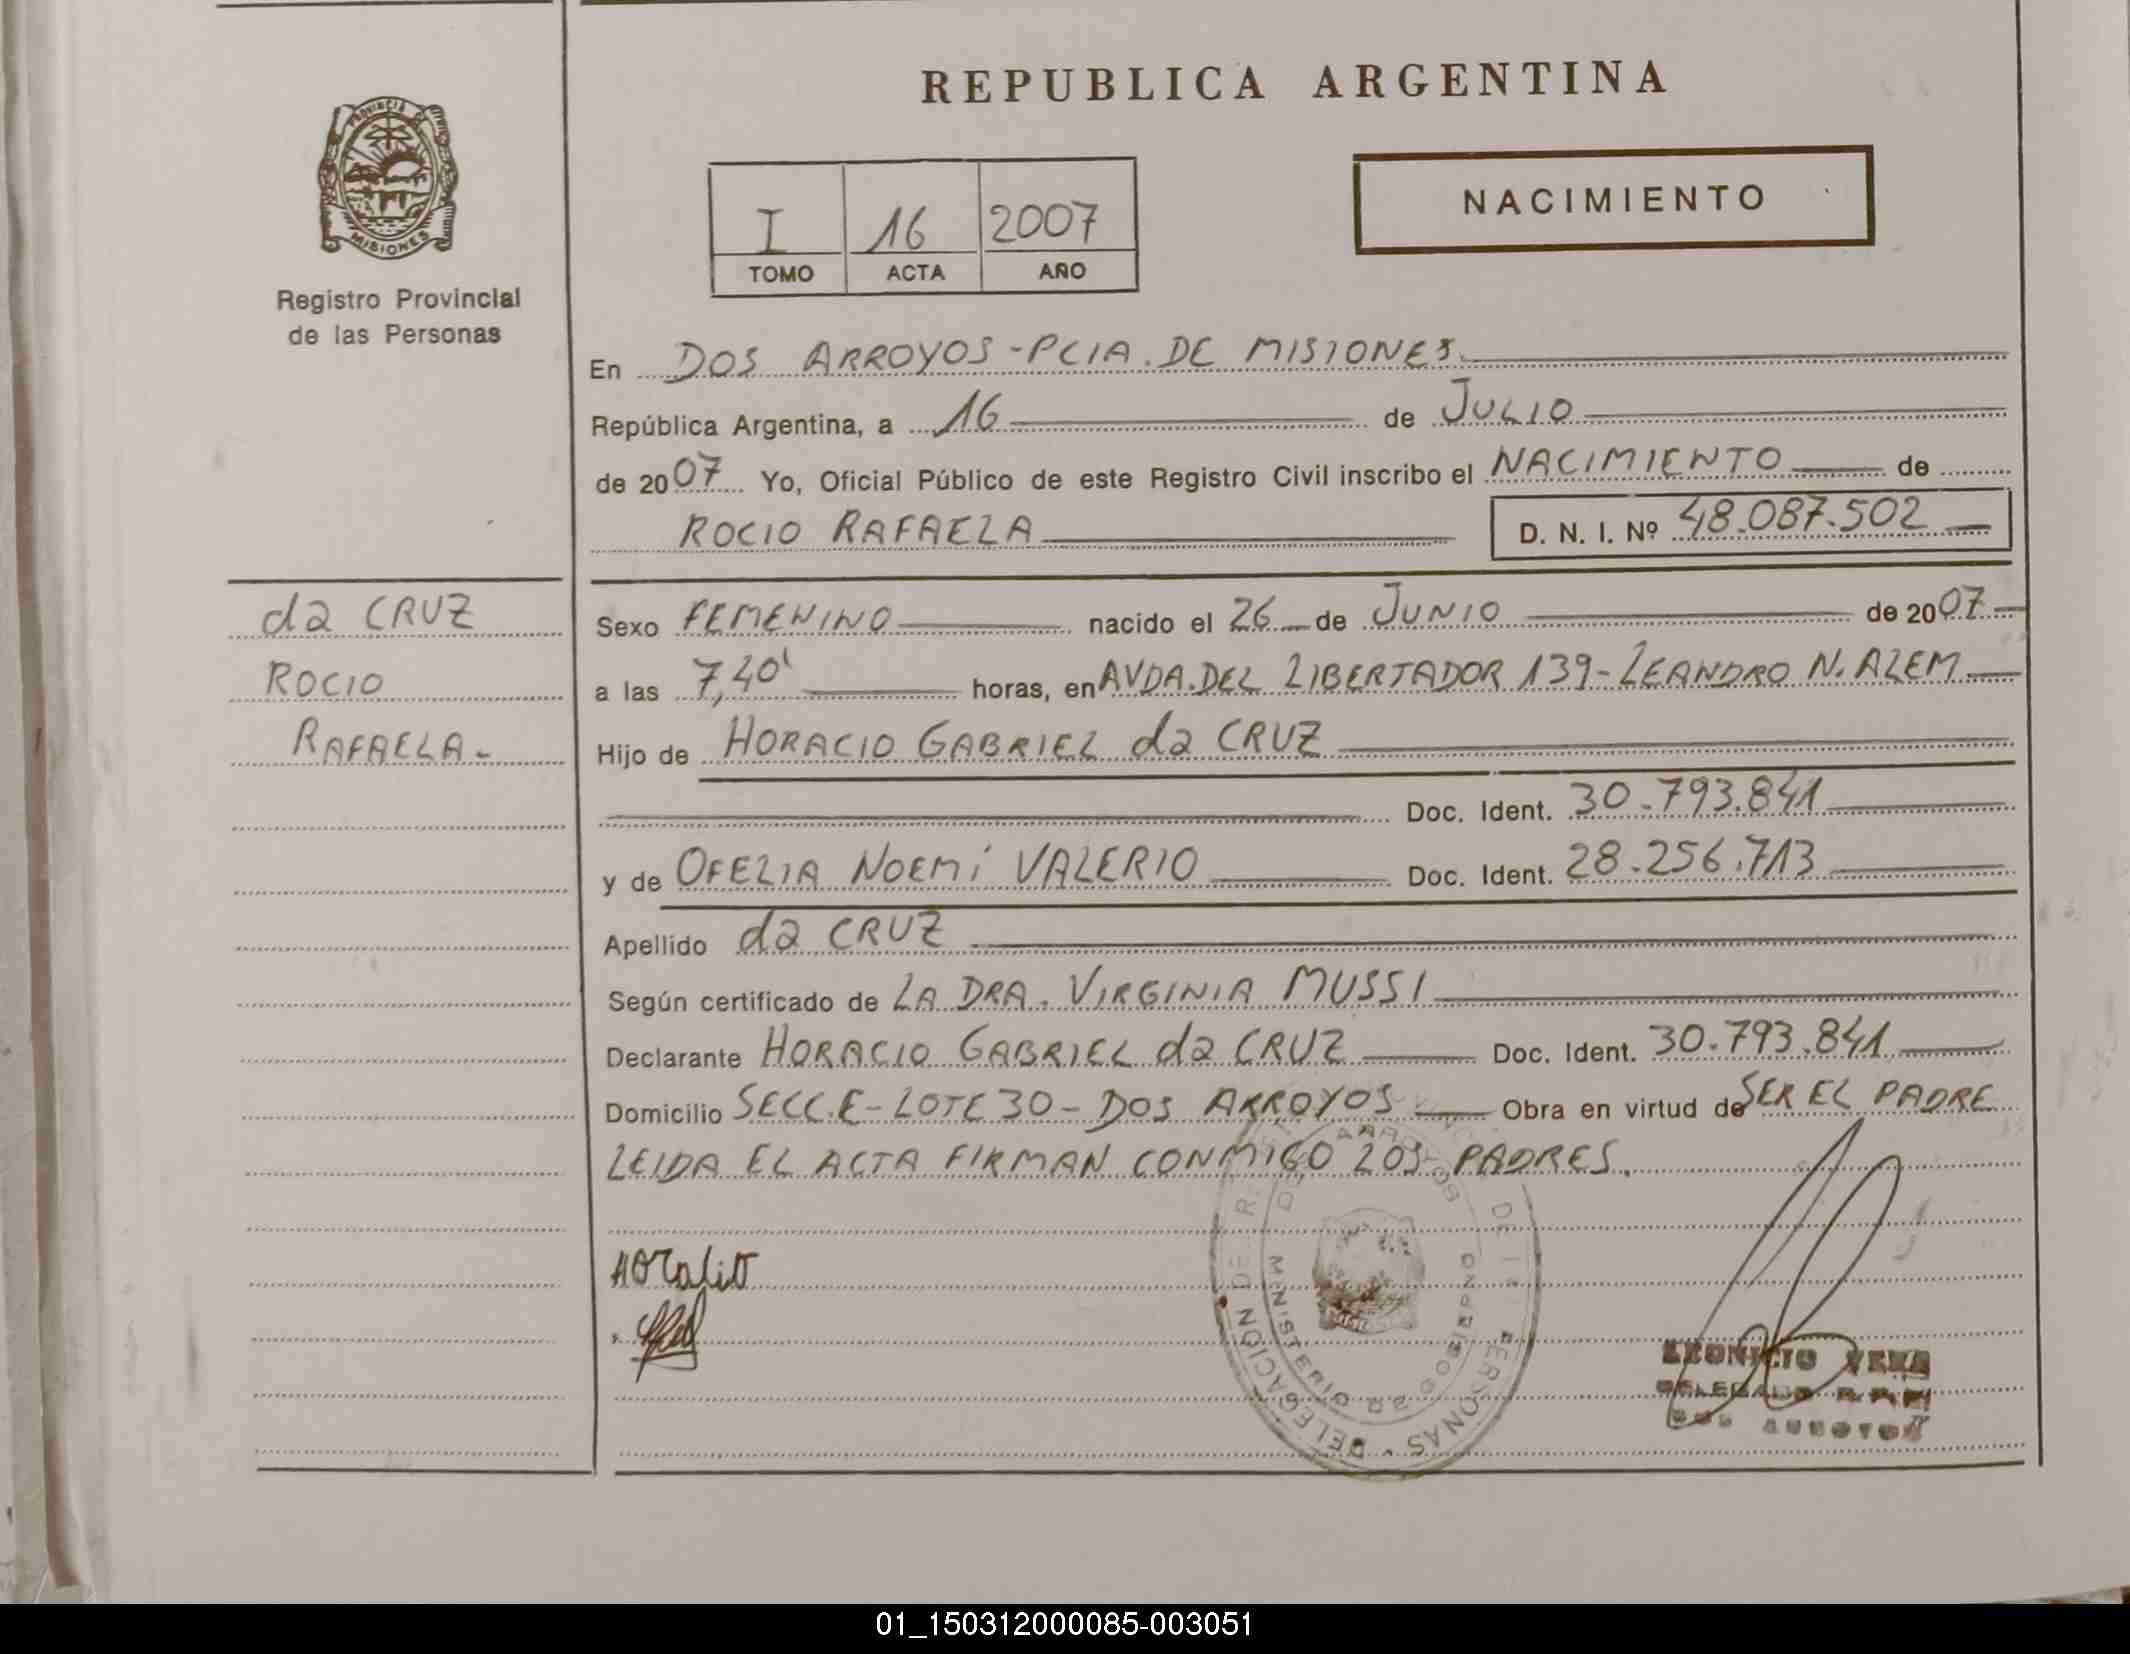 REPUBLICA ARGENTINA
PROVINCIA
MISIONES
Registro Provincial
de las Personas
I 16 2007
TOMO ACTA AÑO
NACIMIENTO
En DOS ARROYOS - PCIA. DE MISIONES.
República Argentina, a 16 de JULIO
de 2007 Yo, Oficial Público de este Registro Civil inscribo el NACIMIENTO de
ROCIO RAFAELA D. N. I. Nº 48.087.502
da CRUZ
ROCIO
RAFAELA-
Sexo FEMENINO nacido el 26 de JUNIO de 2007
a las 7,40' horas, en AVDA. DEL LIBERTADOR 139 - LEANDRO N. ALEM
Hijo de HORACIO GABRIEL da CRUZ
Doc. Ident. 30.793.841
y de OFELIA NOEMí VALERIO Doc. Ident. 28.256.713
Apellido da CRUZ
Según certificado de LA DRA. VIRGINIA MUSSI
Declarante HORACIO GABRIEL da CRUZ Doc. Ident. 30.793.841
Domicilio SECC. E - LOTE 30 - DOS ARROYOS Obra en virtud de SER EL PADRE
LEIDA EL ACTA FIRMAN CONMIGO LOS PADRES.
DELEGACION DE R. DE PERSONAS
MINISTERIO DE GOBIERNO
DOS ARROYOS
01_150312000085-003051